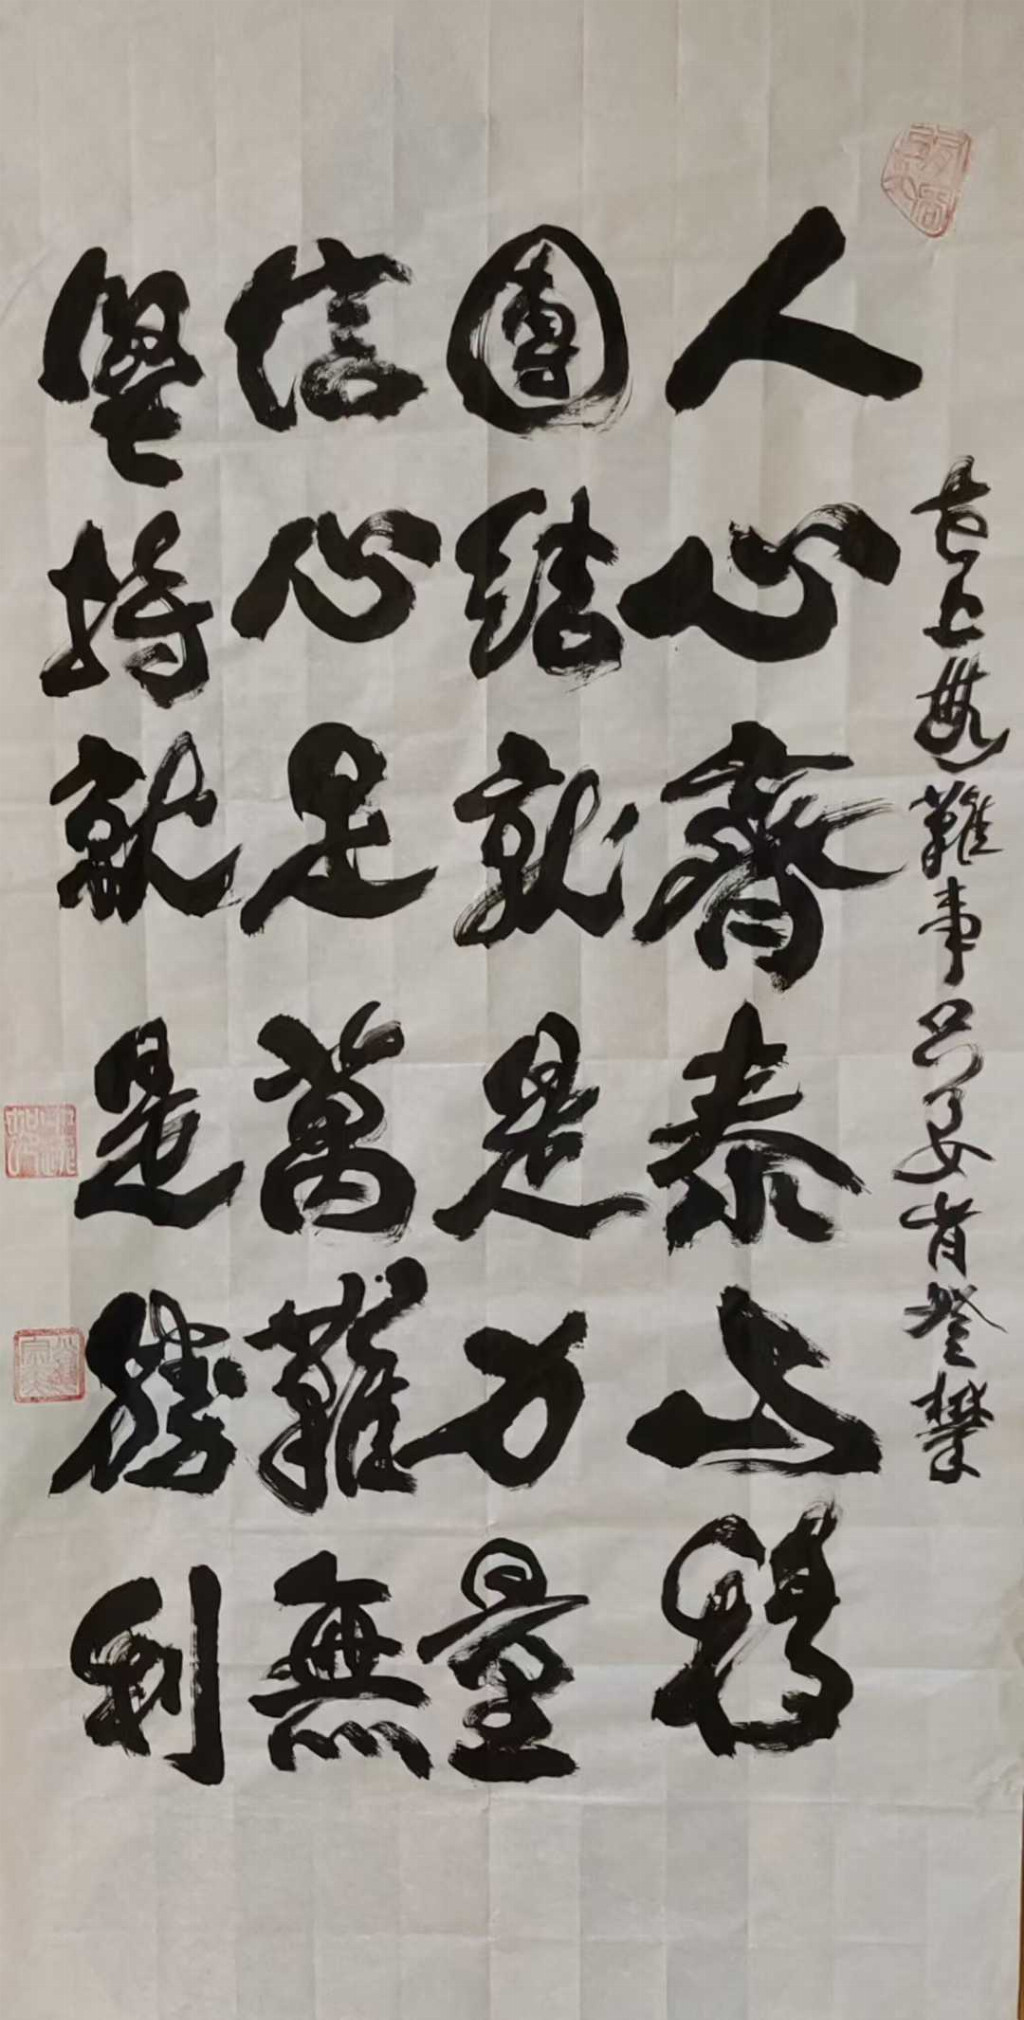 人心齊泰山移
團結就是力量
信心足萬難無
堅持就是勝利
世上無難事只要肯登攀